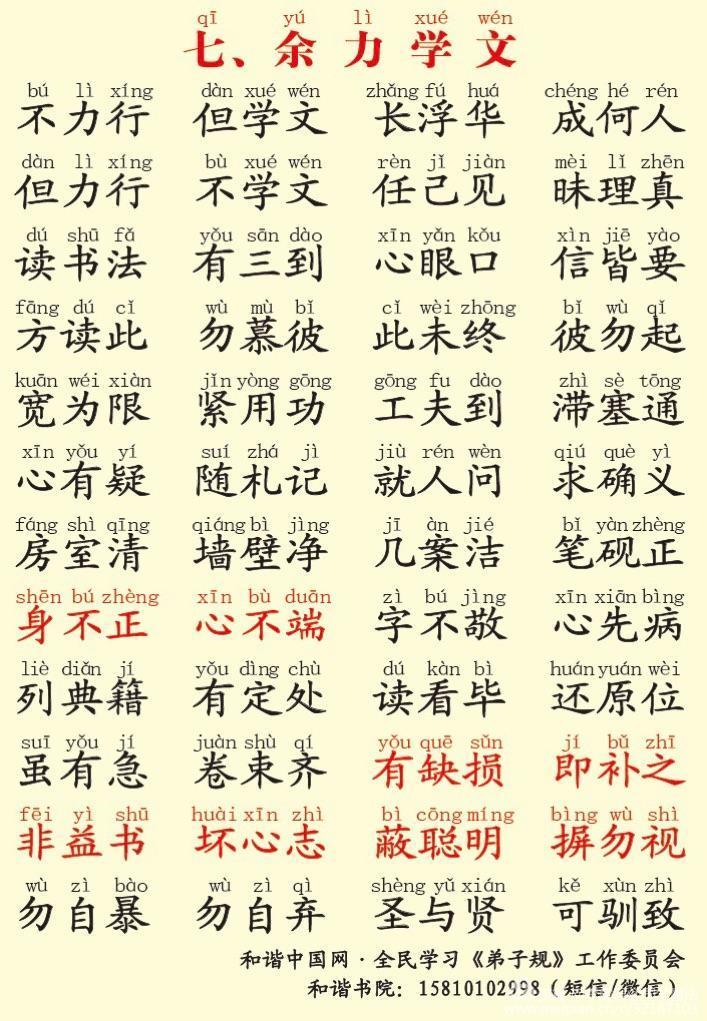 qī yú lì xué wén
七、余力学文
bú lì xíng dàn xué wén zhǎng fú huá chéng hé rén
不力行 但学文 长浮华 成何人
dàn lì xíng bù xué wén rèn jǐ jiàn mèi lǐ zhēn
但力行 不学文 任己见 昧理真
dú shū fǎ yǒu sān dào xīn yǎn kǒu xìn jiē yào
读书法 有三到 心眼口 信皆要
fāng dú cǐ wù mù bǐ cǐ wèi zhōng bǐ wù qǐ
方读此 勿慕彼 此未终 彼勿起
kuān wéi xiàn jǐn yòng gōng gōng fu dào zhì sè tōng
宽为限 紧用功 工夫到 滞塞通
xīn yǒu yí suí zhá jì jiù rén wèn qiú què yì
心有疑 随札记 就人问 求确义
fáng shì qīng qiáng bì jìng jī àn jié bǐ yàn zhèng
房室清 墙壁净 几案洁 笔砚正
shēn bú zhèng xīn bù duān zì bú jìng xīn xiān bìng
身不正 心不端 字不敬 心先病
liè diǎn jí yǒu dìng chù dú kàn bì huán yuán wèi
列典籍 有定处 读看毕 还原位
suī yǒu jí juàn shù qí yǒu quē sǔn jí bǔ zhī
虽有急 卷束齐 有缺损 即补之
fēi yì shū huài xīn zhì bì cōng míng bìng wù shì
非益书 坏心志 蔽聪明 摒勿视
wù zì bào wù zì qì shèng yǔ xián kě xùn zhì
勿自暴 勿自弃 圣与贤 可驯致
和谐中国网·全民学习《弟子规》工作委员会
和谐书院：15810102998（短信/微信）